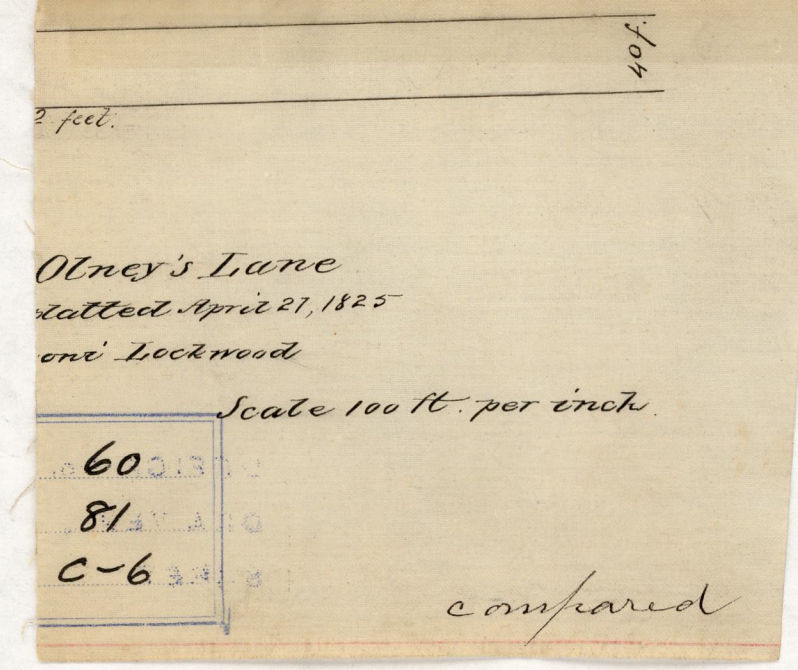 40f.
2 feet.
Olney's Lane
platted April 27, 1825
oni Lockwood
Scale 100 ft. per inch.
60
81
C-6
compared